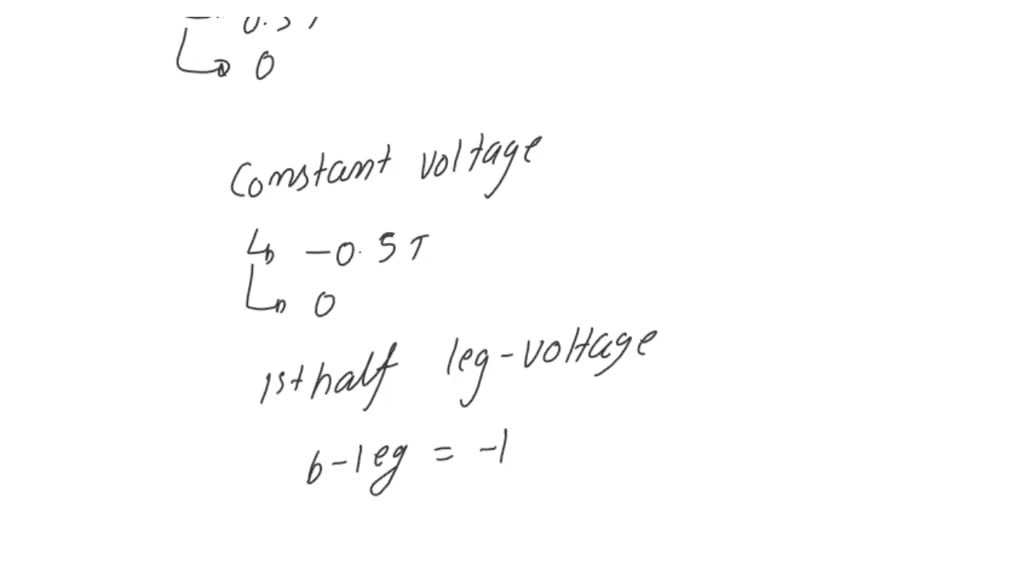 0
Constant voltage
↳ -0.5T
↳ 0
1st half leg-voltage
b-leg = -1